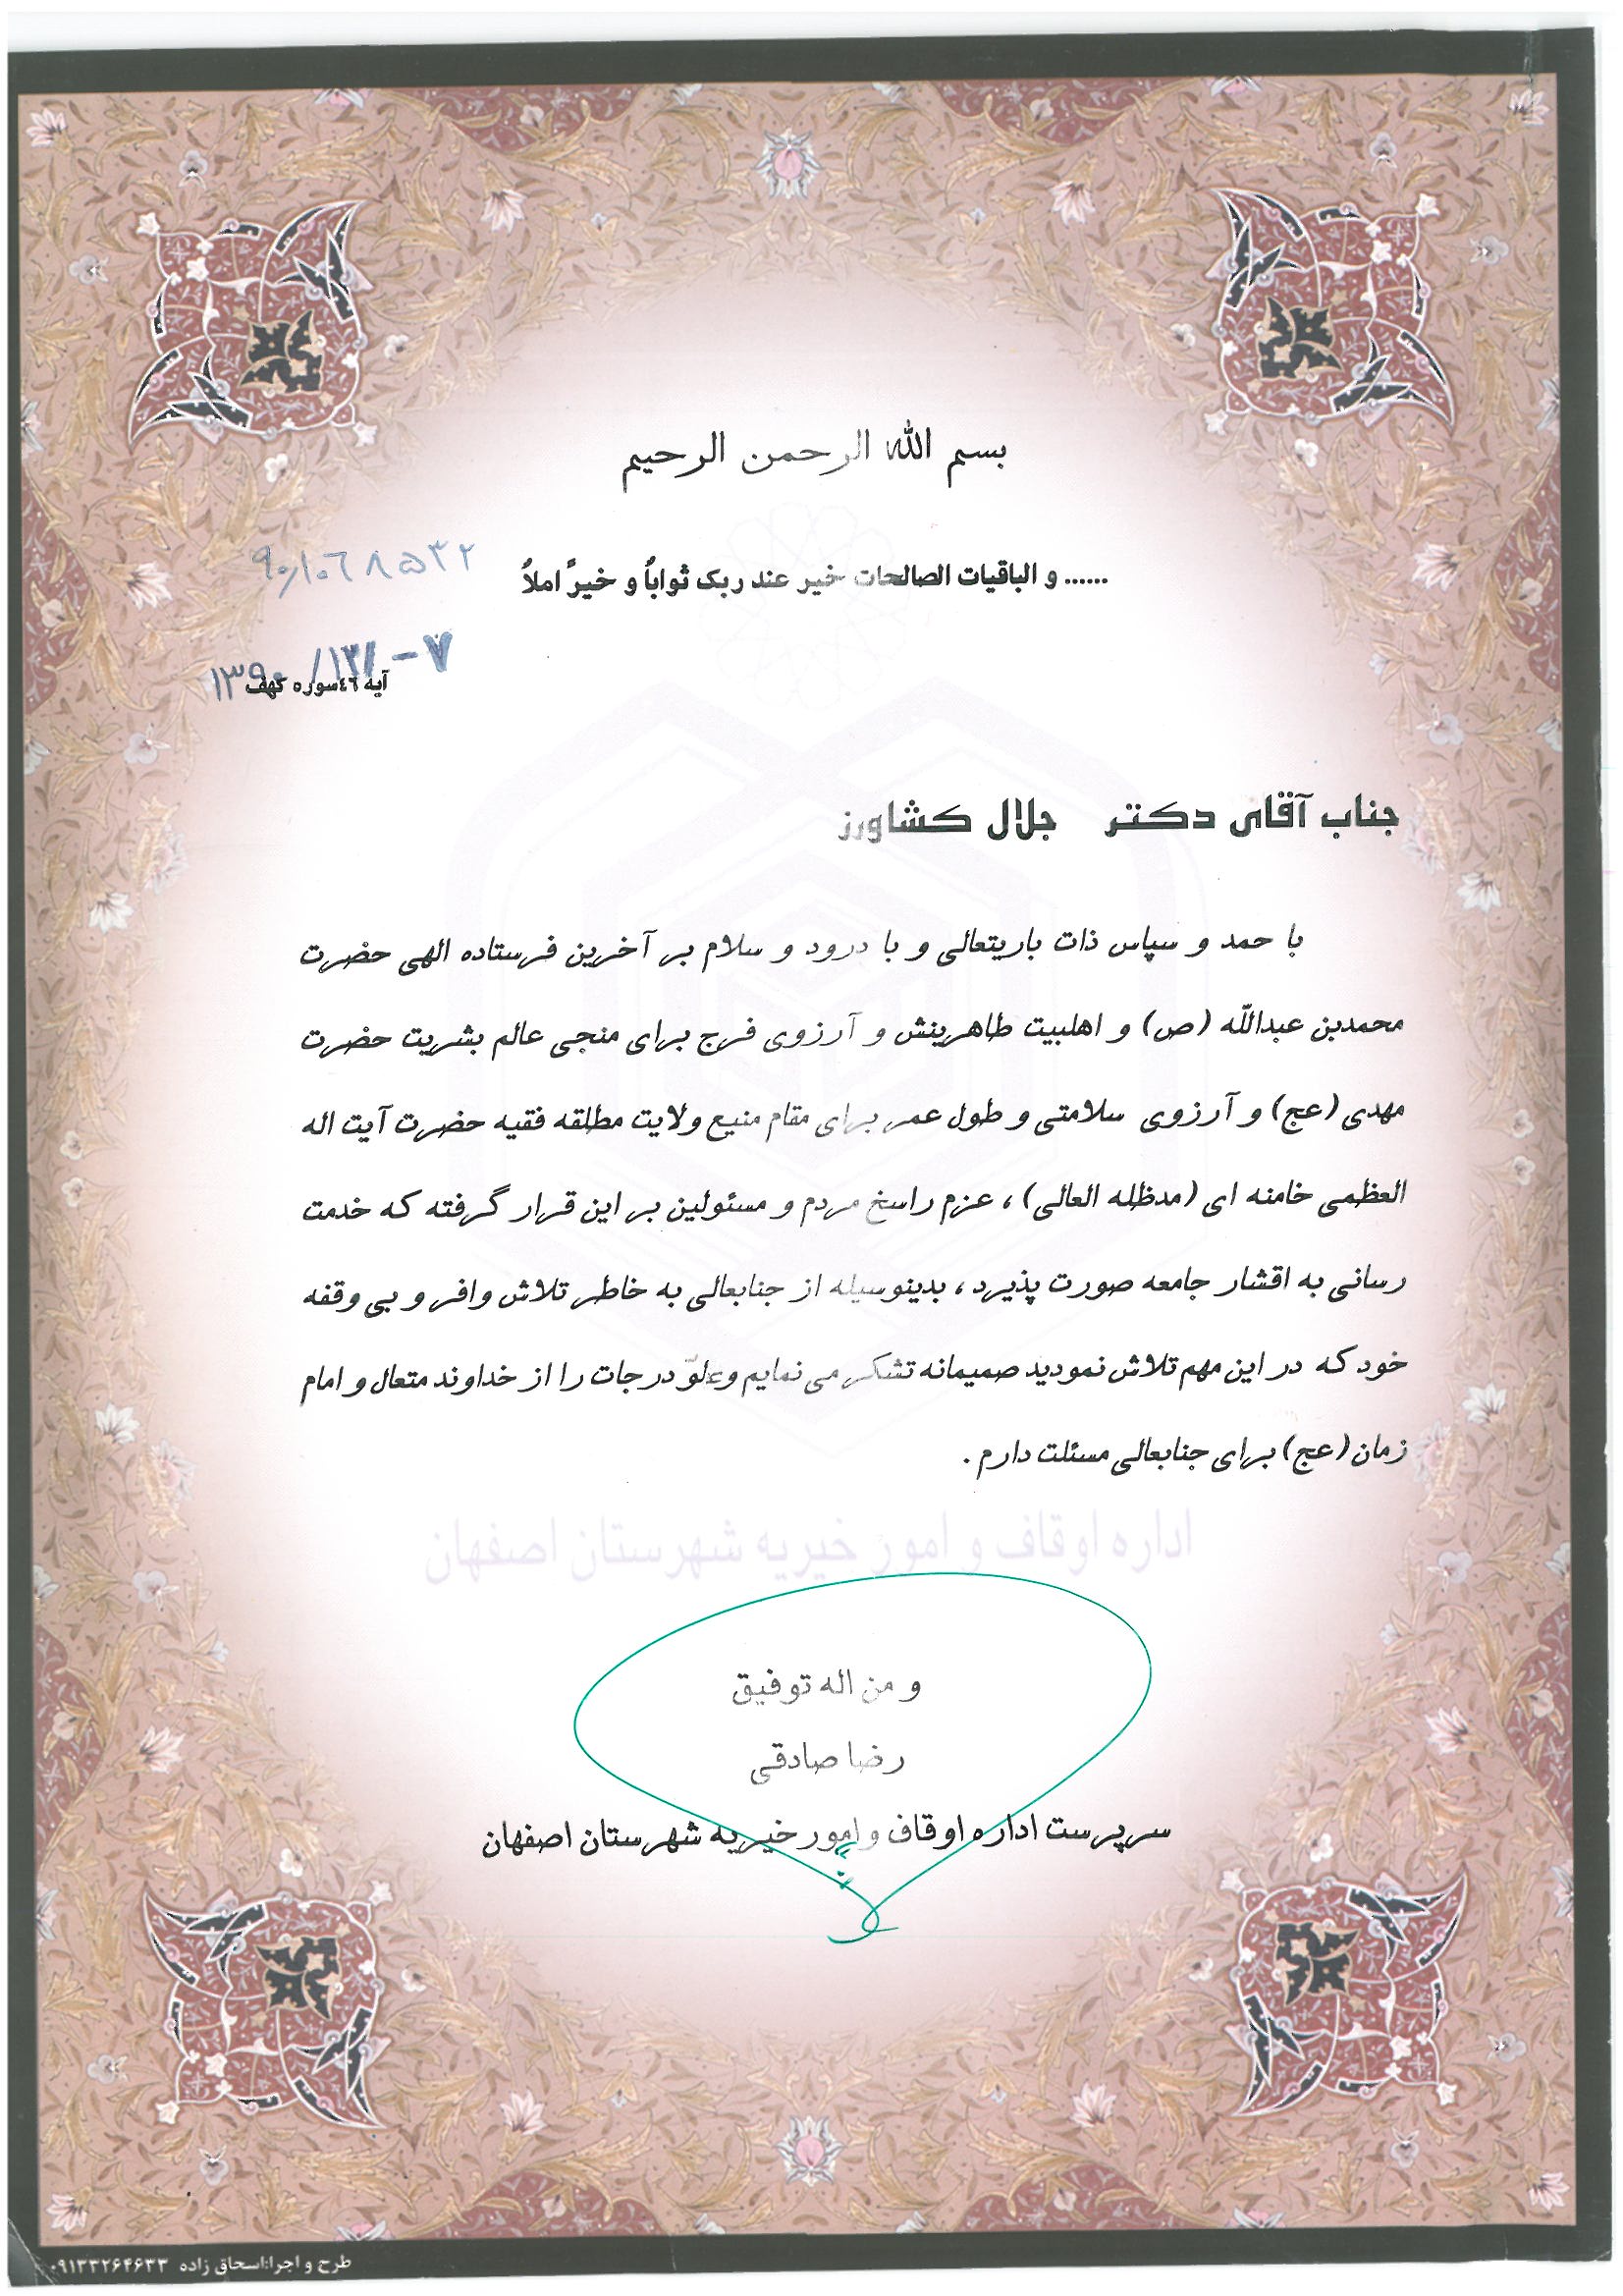 بسم الله الرحمن الرحیم
...... و الباقیات الصالحات خیر عند ربک ثواباُ و خیرً املاُ
آیه ٤٦سوره کهف
جناب آقای دکتر جلال کشاورز
با حمد و سپاس ذات باریتعالی و با درود و سلام بر آخرین فرستاده الهی حضرت
محمدبن عبداللّه (ص) و اهلبیت طاهرینش و آرزوی فرج برای منجی عالم بشریت حضرت
مهدی (عج) و آرزوی سلامتی و طول عمر برای مقام منیع ولایت مطلقه فقیه حضرت آیت اله
العظمی خامنه ای (مدظله العالی) ، عزم راسخ مردم و مسئولین بر این قرار گرفته که خدمت
رسانی به اقشار جامعه صورت پذیرد ، بدینوسیله از جنابعالی به خاطر تلاش وافر و بی وقفه
خود که در این مهم تلاش نمودید صمیمانه تشکر می نمایم و علوّ درجات را از خداوند متعال و امام
زمان (عج) برای جنابعالی مسئلت دارم .
اداره اوقاف و امور خیریه شهرستان اصفهان
و من اله توفیق
رضا صادقی
سرپرست اداره اوقاف و امور خیریه شهرستان اصفهان
طرح و اجرا:اسحاق زاده ۰۹۱۳۳۲۶۴۶۳۳